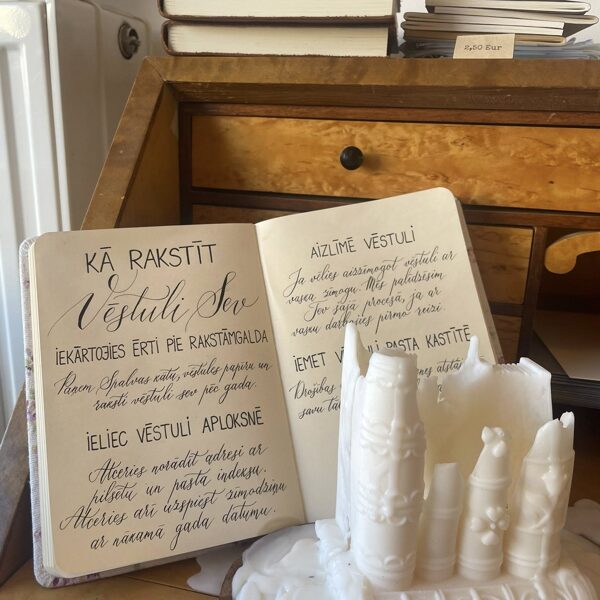 2,50 Eur
KĀ RAKSTĪT
Vēstuli Sev
IEKĀRTOJIES ĒRTI PIE RAKSTĀMGALDA
Paņem Spalvas kātu, vēstules papīru un
raksti vēstuli sev pēc gada.
IELIEC VĒSTULI APLOKSNĒ
Atceries norādīt adresi ar
pilsētu un pasta indeksu.
Atceries arī uzspiest zīmodziņu
ar nākamā gada datumu.
AIZLĪMĒ VĒSTULI
Ja vēlies aizzīmogot vēstuli ar
vaska zīmogu. Mēs palīdzēsim
Tev šajā procesā, ja ar
vasku darbojies pirmo reizi.
IEMET VĒSTULI PASTA KASTĪTĒ
Drošības
savu